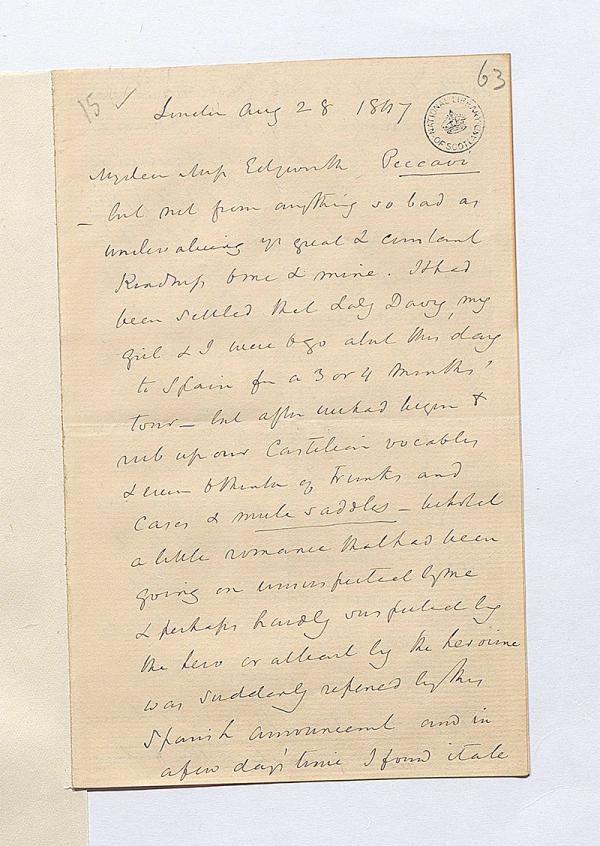 63
15 ✓
London Aug 28 1847
NATIONAL LIBRARY OF SCOTLAND
My dear Miss Edgworth, Peccavi
– but not from anything so bad as
undervaluing yr great & constant
Kindness to me & mine. It had
been settled that Lady Davy, my
girl & I were to go abt this day
to Spain for a 3 or 4 months'
tour – but after we had begun to
rub up our Castilian vocables
& even to think of Trunks and
Cases & mule saddles – behold
a little romance that had been
going on unsuspected by me
& perhaps hardly suspected by
the hero or at least by the heroine
was suddenly ripened by this
Spanish announcement and in
a few day's time I found it all